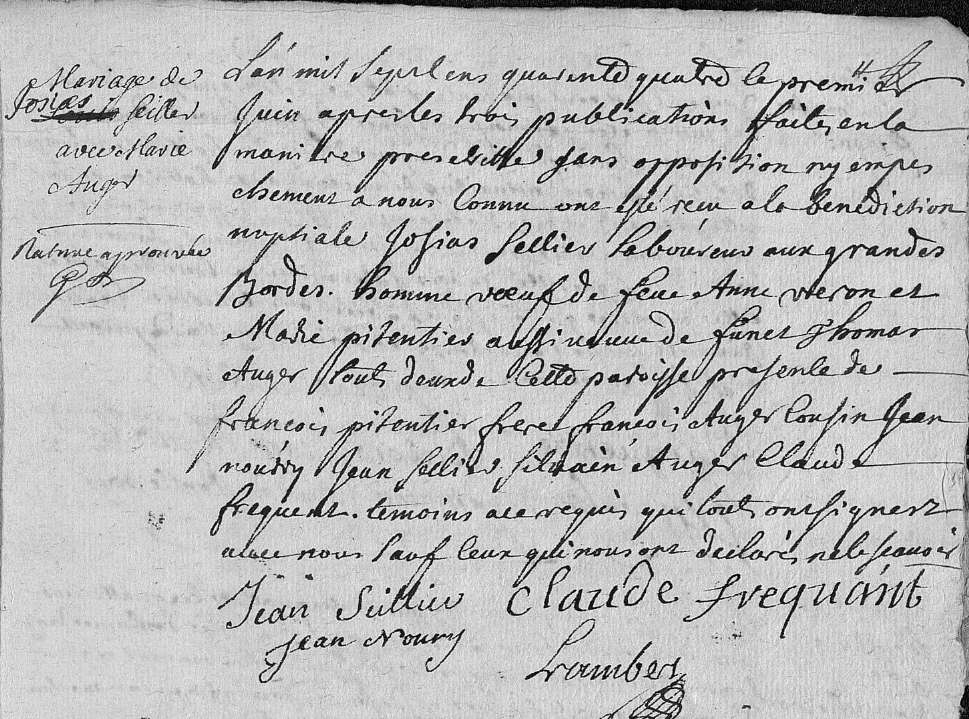 Mariage de
Josias Seillier
avec Marie
Auger
Rature aprouvée
L'an mil sept cens quarente quatre le premier
Juin apres les trois publications faites en la
maniere prescritte sans opposition ny empes
chement a nous Connu ont esté recu a la benediction
nuptiale Josias Sellier laboureur aux grandes
Bordes. homme voeuf de feue Anne veron et
Marie pitentier aussi veuve de funet Thomas
Auger touts deux de Cette paroisse presente de
francois pitentier frere francois Auger Cousin Jean
nourry Jean Sellier Silvain Auger Claude
frequent. temoins a ce requis qui touts ont signert
avec nous sauf Ceux qui nous ont declaré ne le scauoir
Jean Sellier Claude frequant
Jean Noury
Lambert